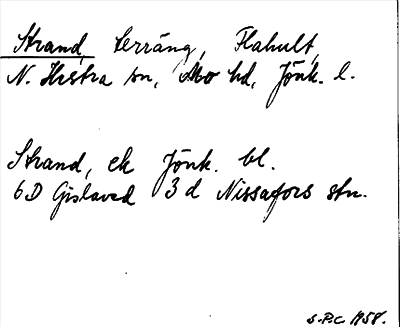 Strand, terräng, Flahult,
N. Hestra sn, Mo hd, Jönk. l.
Strand, ek Jönk. bl.
6D Gislaved 3d Nissafors stn.
S.P.C. 1958.